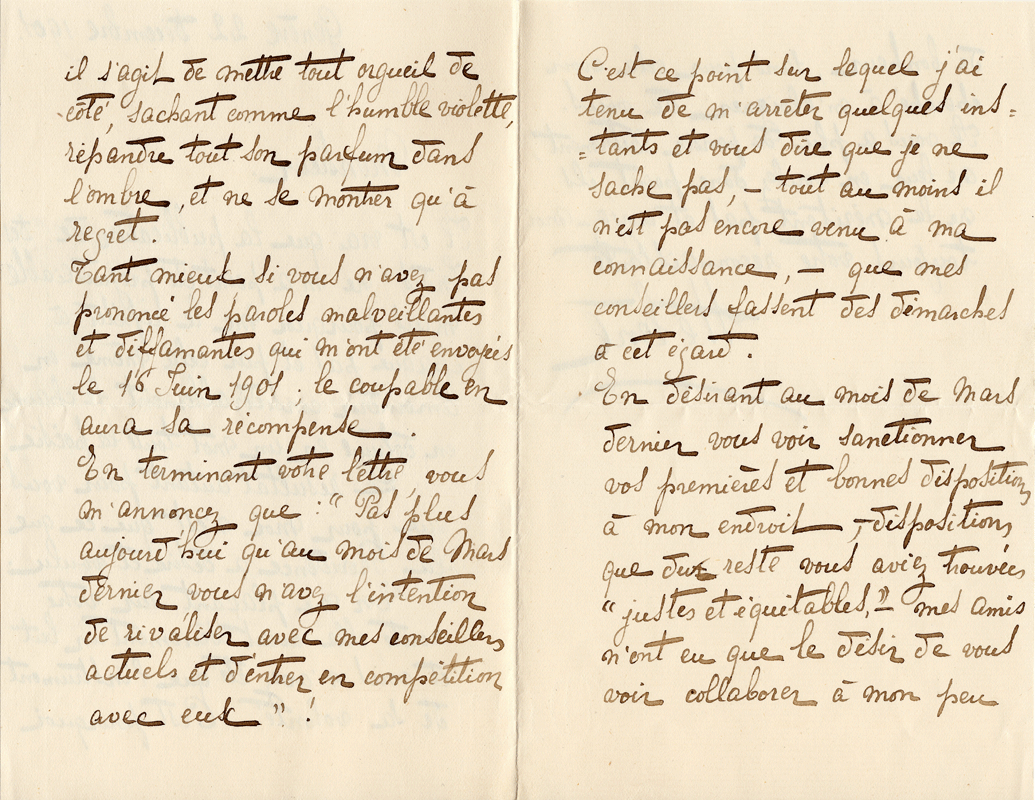 il s'agit de mettre tout orgueil de
côté, sachant comme l'humble violette,
répandre tout son parfum dans
l'ombre, et ne se montrer qu'à
regret.
Tant mieux si vous n'avez pas
prononcé les paroles malveillantes
et diffamantes qui m'ont été envoyées
le 16 Juin 1901 ; le coupable en
aura sa récompense.
En terminant votre lettre, vous
m'annoncez que : " Pas plus
aujourd'hui qu'au mois de Mars
dernier vous n'avez l'intention
de rivaliser avec mes conseillers
actuels et d'entrer en compétition
avec eux " !
C'est ce point sur lequel j'ai
tenu de m'arrêter quelques ins=
=tants et vous dire que je ne
sache pas, – tout au moins il
n'est pas encore venu à ma
connaissance, – que mes
conseillers fassent des démarches
à cet égard.
En désirant au mois de Mars
dernier vous voir sanctionner
vos premières et bonnes dispositions
à mon endroit, – dispositions
que du reste vous aviez trouvées
" justes et équitables, " – mes amis
n'ont eu que le désir de vous
voir collaborer à mon peu